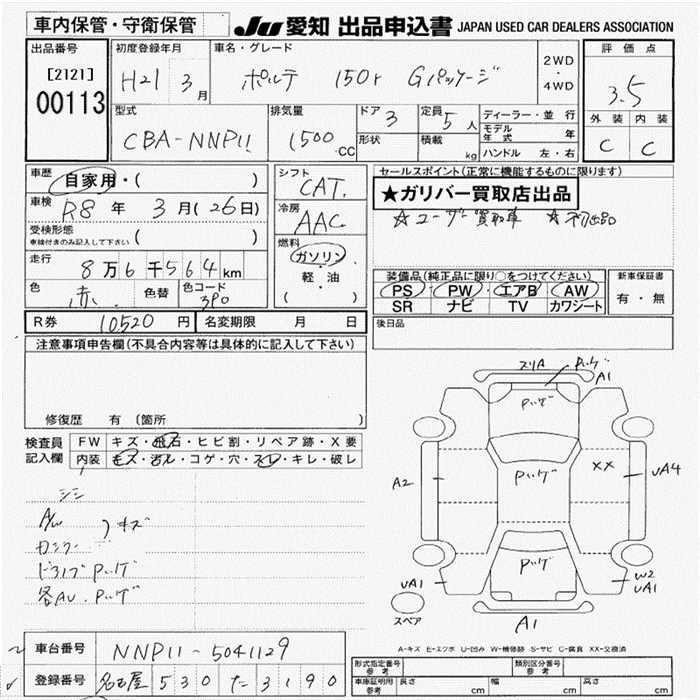 車内保管・守衛保管
JU 愛知 出品申込書 JAPAN USED CAR DEALERS ASSOCIATION
出品番号
[2121]
00113
初度登録年月
H21 3 月
車名・グレード
ポルテ 150r Gパッケージ
2WD
・
4WD
評価点
3.5
外装 内装
C C
型式
CBA-NNP11
排気量
1500 CC
ドア 3
形状
定員 5 人
積載 kg
ディーラー・並行
モデル年式 年
ハンドル 左・右
車歴
自家用・( )
車検 R8 年 3 月 (26 日)
受検形態
車検付きのみ記入して下さい ( )
走行
8 万 6 千 5 6 4 km
色 赤 色替 色コード 3P0
シフト
CAT.
冷房
AAC
燃料
ガソリン
・
軽・油
( )
セールスポイント(正常に機能するものに限ります)
★ガリバー買取店出品
☆ユーザー買取車 ☆初出品
装備品(純正品に限り○をつけてください)
PS PW エアB AW
SR ナビ TV カワシート
新車保証書
有・無
R券 10520 円 名変期限 月 日
後日品
注意事項申告欄(不具合内容等は具体的に記入して下さい)
修復歴 有 (箇所 )
検査員記入欄
FW キズ・飛石・ヒビ割・リペア跡・X要
内装 キズ・汚レ・コゲ・穴・スレ・キレ・破レ
A/W
キズ
スリA
A1
A2
XX
UA4
UA1
W2
UA1
スペア
A1
A-キズ E-エクボ U-凹み W-補修跡 S-サビ C-腐食 XX-交換済
車台番号 NNP11-5041129
登録番号 名古屋 530 た 3190
形式指定番号 参考
類別区分番号 参考
車庫証明用 参考 長さ cm 幅 cm 高さ cm